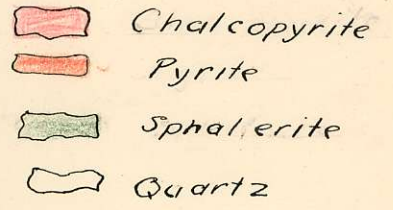 Chalcopyrite
Pyrite
Sphalerite
Quartz